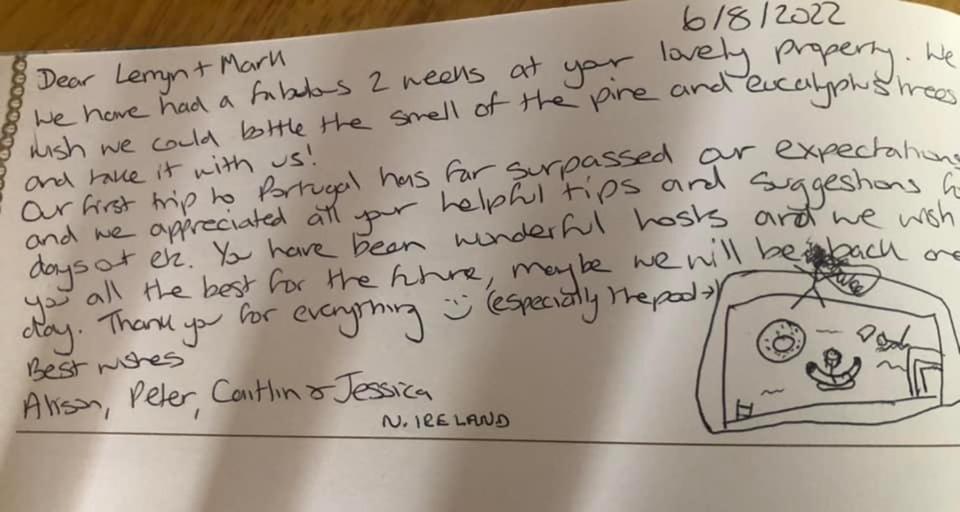 6/8/2022
Dear Lemyn + Mark
We have had a fabulous 2 weeks at your lovely property. We
wish we could bottle the smell of the pine and eucalyptus trees
and take it with us!
Our first trip to Portugal has far surpassed our expectations
and we appreciated all your helpful tips and suggestions
days out etc. You have been wonderful hosts and we wish
you all the best for the future, maybe we will be back one
day. Thank you for everything :) (especially the pool →)
Best wishes
Alison, Peter, Caitlin & Jessica
N. IRELAND